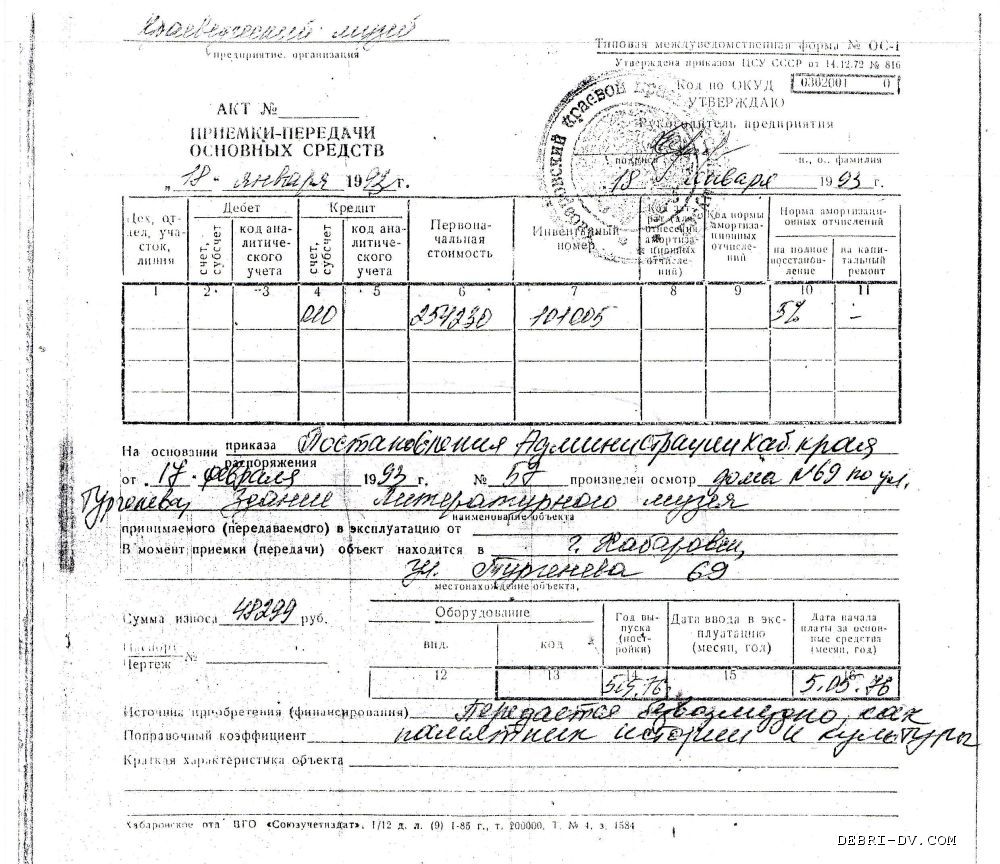 Краеведческий музей
предприятие, организация
Типовая междуведомственная форма № ОС-1
Утверждена приказом ЦСУ СССР от 14.12.72 № 816
Код по ОКУД 0302001 0
УТВЕРЖДАЮ
АКТ №
Руководитель предприятия
ПРИЕМКИ-ПЕРЕДАЧИ
ОСНОВНЫХ СРЕДСТВ
подпись и., о., фамилия
„18" января 1993 г.
18 января 1993 г.
краевой крае
Цех, отдел, участок, линия
Дебет
счет, субсчет
код аналитического учета
Кредит
счет, субсчет
код аналитического учета
Первоначальная стоимость
Инвентарный номер
Код нормы амортизационных отчислений
Норма амортизационных отчислений
на полное восстановление
на капитальный ремонт
1 2 3 4 5 6 7 8 9 10 11
010 254230 101005 5% –
На основании приказа Постановления Администрации Хаб. края
распоряжения
от 17 февраля 1993 г. № 57 произведен осмотр дома №69 по ул.
Тургенева Здание Литературного музея
наименование объекта
принимаемого (передаваемого) в эксплуатацию от
В момент приемки (передачи) объект находится в г. Хабаровск,
ул. Тургенева 69
местонахождение объекта,
Сумма износа 48299 руб.
Паспорт
Чертеж №
Оборудование
вид.
код
Год выпуска (постройки)
Дата ввода в эксплуатацию (месяц, год)
Дата начала платы за основные средства (месяц, год)
12 13 15
5.05.76
Источник приобретения (финансирования) Передается безвозмездно, как
Поправочный коэффициент памятник истории и культуры
Краткая характеристика объекта
Хабаровское отд. ВГО «Союзучетиздат», 1/12 д. л. (9) 1-85 г., т. 200000, Т. № 4, з. 1584
DEBRI-DV.COM